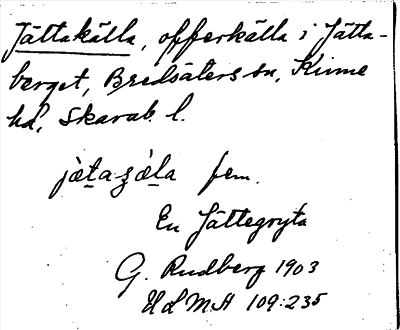 Jättakälla, offerkälla i Jätta-
berget, Bredsäters sn, Kinne
hd, Skarab. l.
jæ̀ta ʒæ̀la fem.
En Jättegryta
G. Rudberg 1903
ULMA 109:235